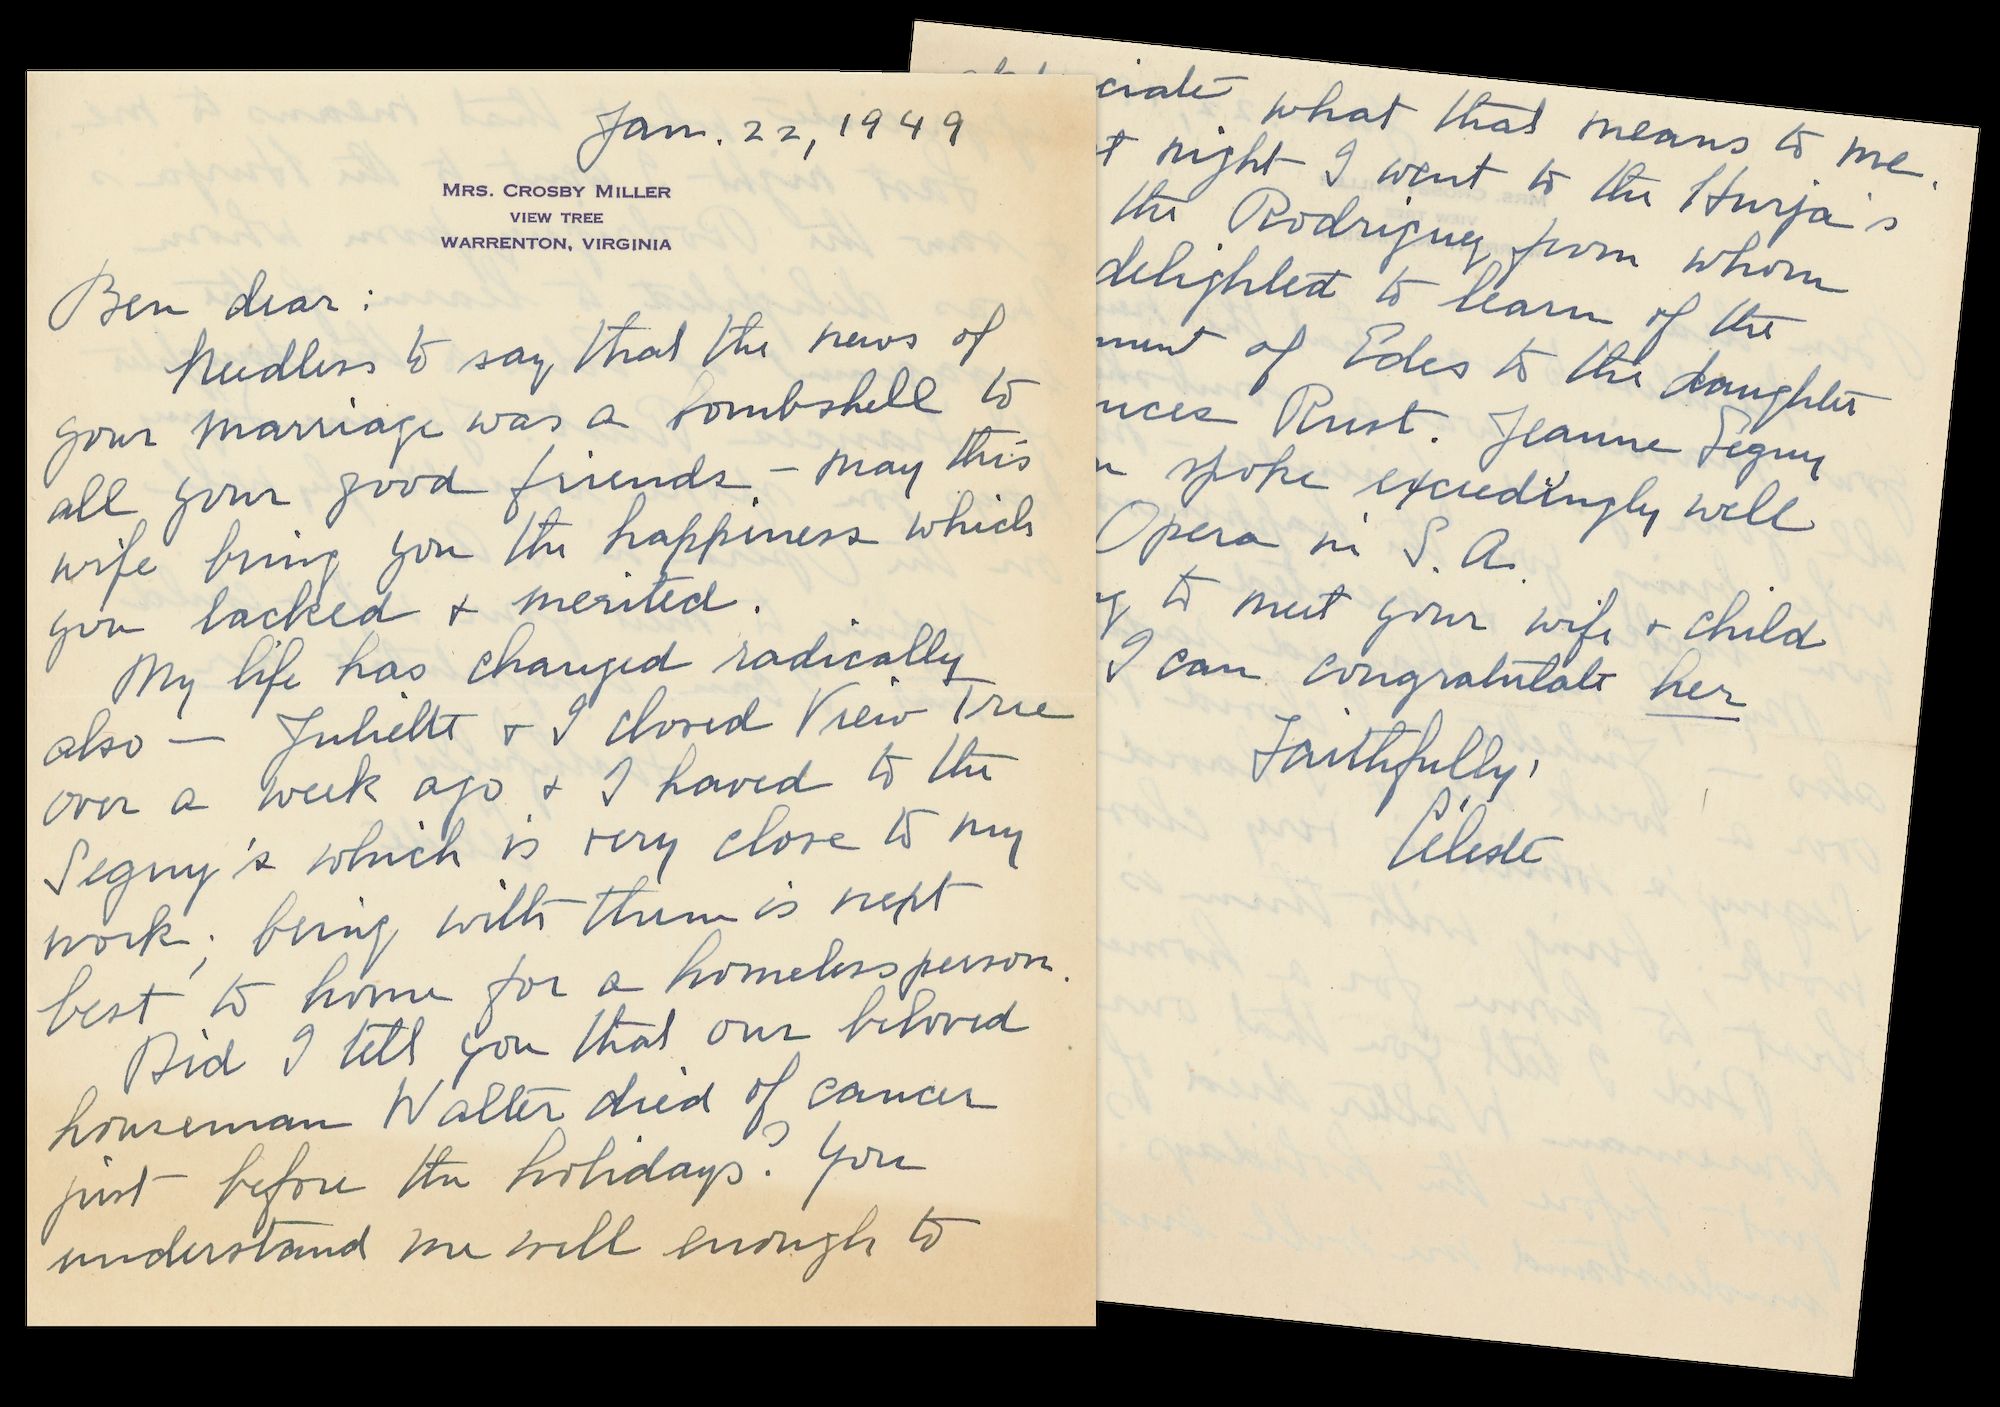 Jan. 22, 1949
MRS. CROSBY MILLER
VIEW TREE
WARRENTON, VIRGINIA
Ben dear:
Needless to say that the news of
your marriage was a bombshell to
all your good friends – may this
wife bring you the happiness which
you lacked & merited.
My life has changed radically
also — Juliette & I closed View Tree
over a week ago & I haved to the
Seguy's which is very close to my
work; being with them is next
best to home for a homeless person.
Did I tell you that our beloved
houseman Walter died of cancer
just before the holidays? You
understand me well enough to
what that means to me.
night I went to the Hurja's
the Rodriguez from whom
delighted to learn of the
of Edes to the daughter
Rust. Jeanne Seguy
spoke exceedingly well
Opera in S.A.
to meet your wife & child
I can congratulate her
Faithfully,
Céleste